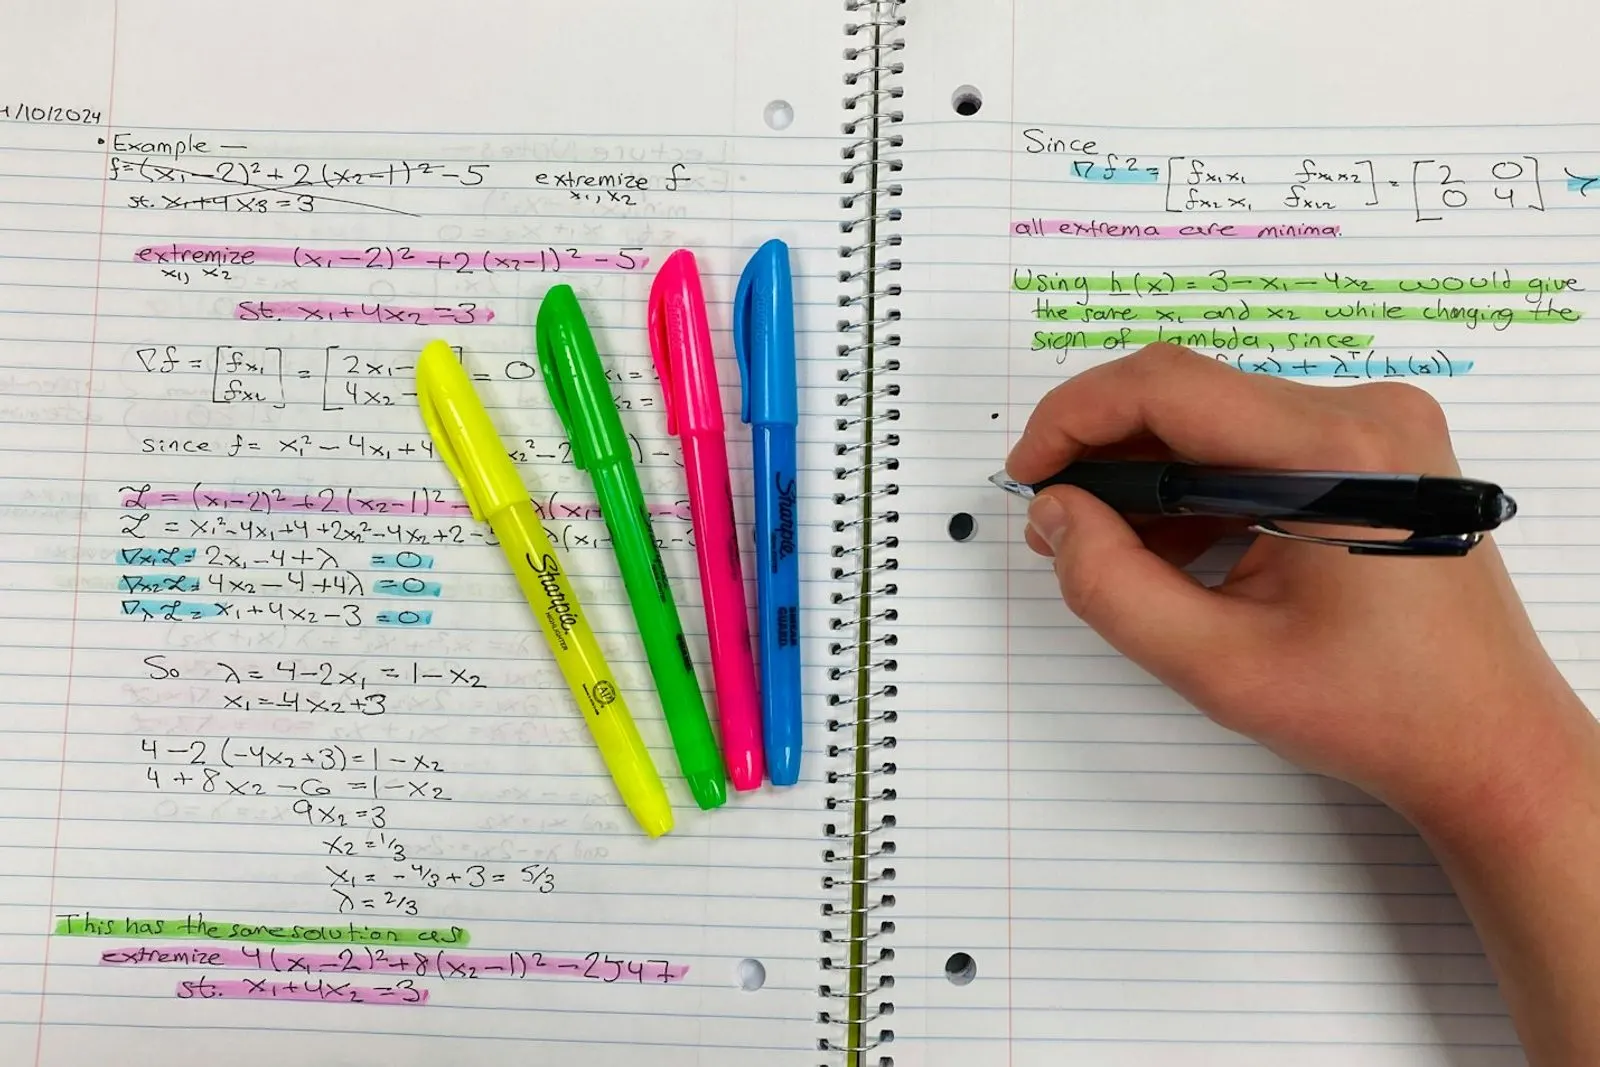 /10/2024
• Example —
f=(x₁-2)²+2(x₂-1)²-5 extremize f
x₁, x₂
st. x₁+4x₃=3
extremize (x₁-2)²+2(x₂-1)²-5
x₁, x₂
st. x₁+4x₂=3
∇f = [fx₁ fx₂] = [2x₁- 4x₂- = 0 x₁= x₂=
since f= x₁²-4x₁+4 x₂²-2 ) -
ℒ = (x₁-2)²+2(x₂-1)² - λ(x₁ -3
ℒ = x₁²-4x₁+4+2x₂²-4x₂+2- λ(x₁ -3
∇x₁ℒ= 2x₁-4+λ =0
∇x₂ℒ= 4x₂-4+4λ =0
∇λℒ= x₁+4x₂-3 =0
So λ=4-2x₁=1-x₂
x₁=-4x₂+3
4-2(-4x₂+3)=1-x₂
4+8x₂-6=1-x₂
9x₂=3
x₂=1/3
x₁= -4/3+3= 5/3
λ=2/3
This has the same solution as
extremize 4(x₁-2)²+8(x₂-1)²-2547
st. x₁+4x₂=3
Sharpie.
HIGHLIGHTER
Sharpie.
SMEAR GUARD
Since
∇f2= [fx₁x₁ fx₁x₂ fx₂x₁ fx₂₂] = [2 0 0 4]
all extrema are minima.
Using h(x)=3-x₁-4x₂ would give
the same x₁ and x₂ while changing the
sign of lambda, since
(x)+λᵀ(h(x))